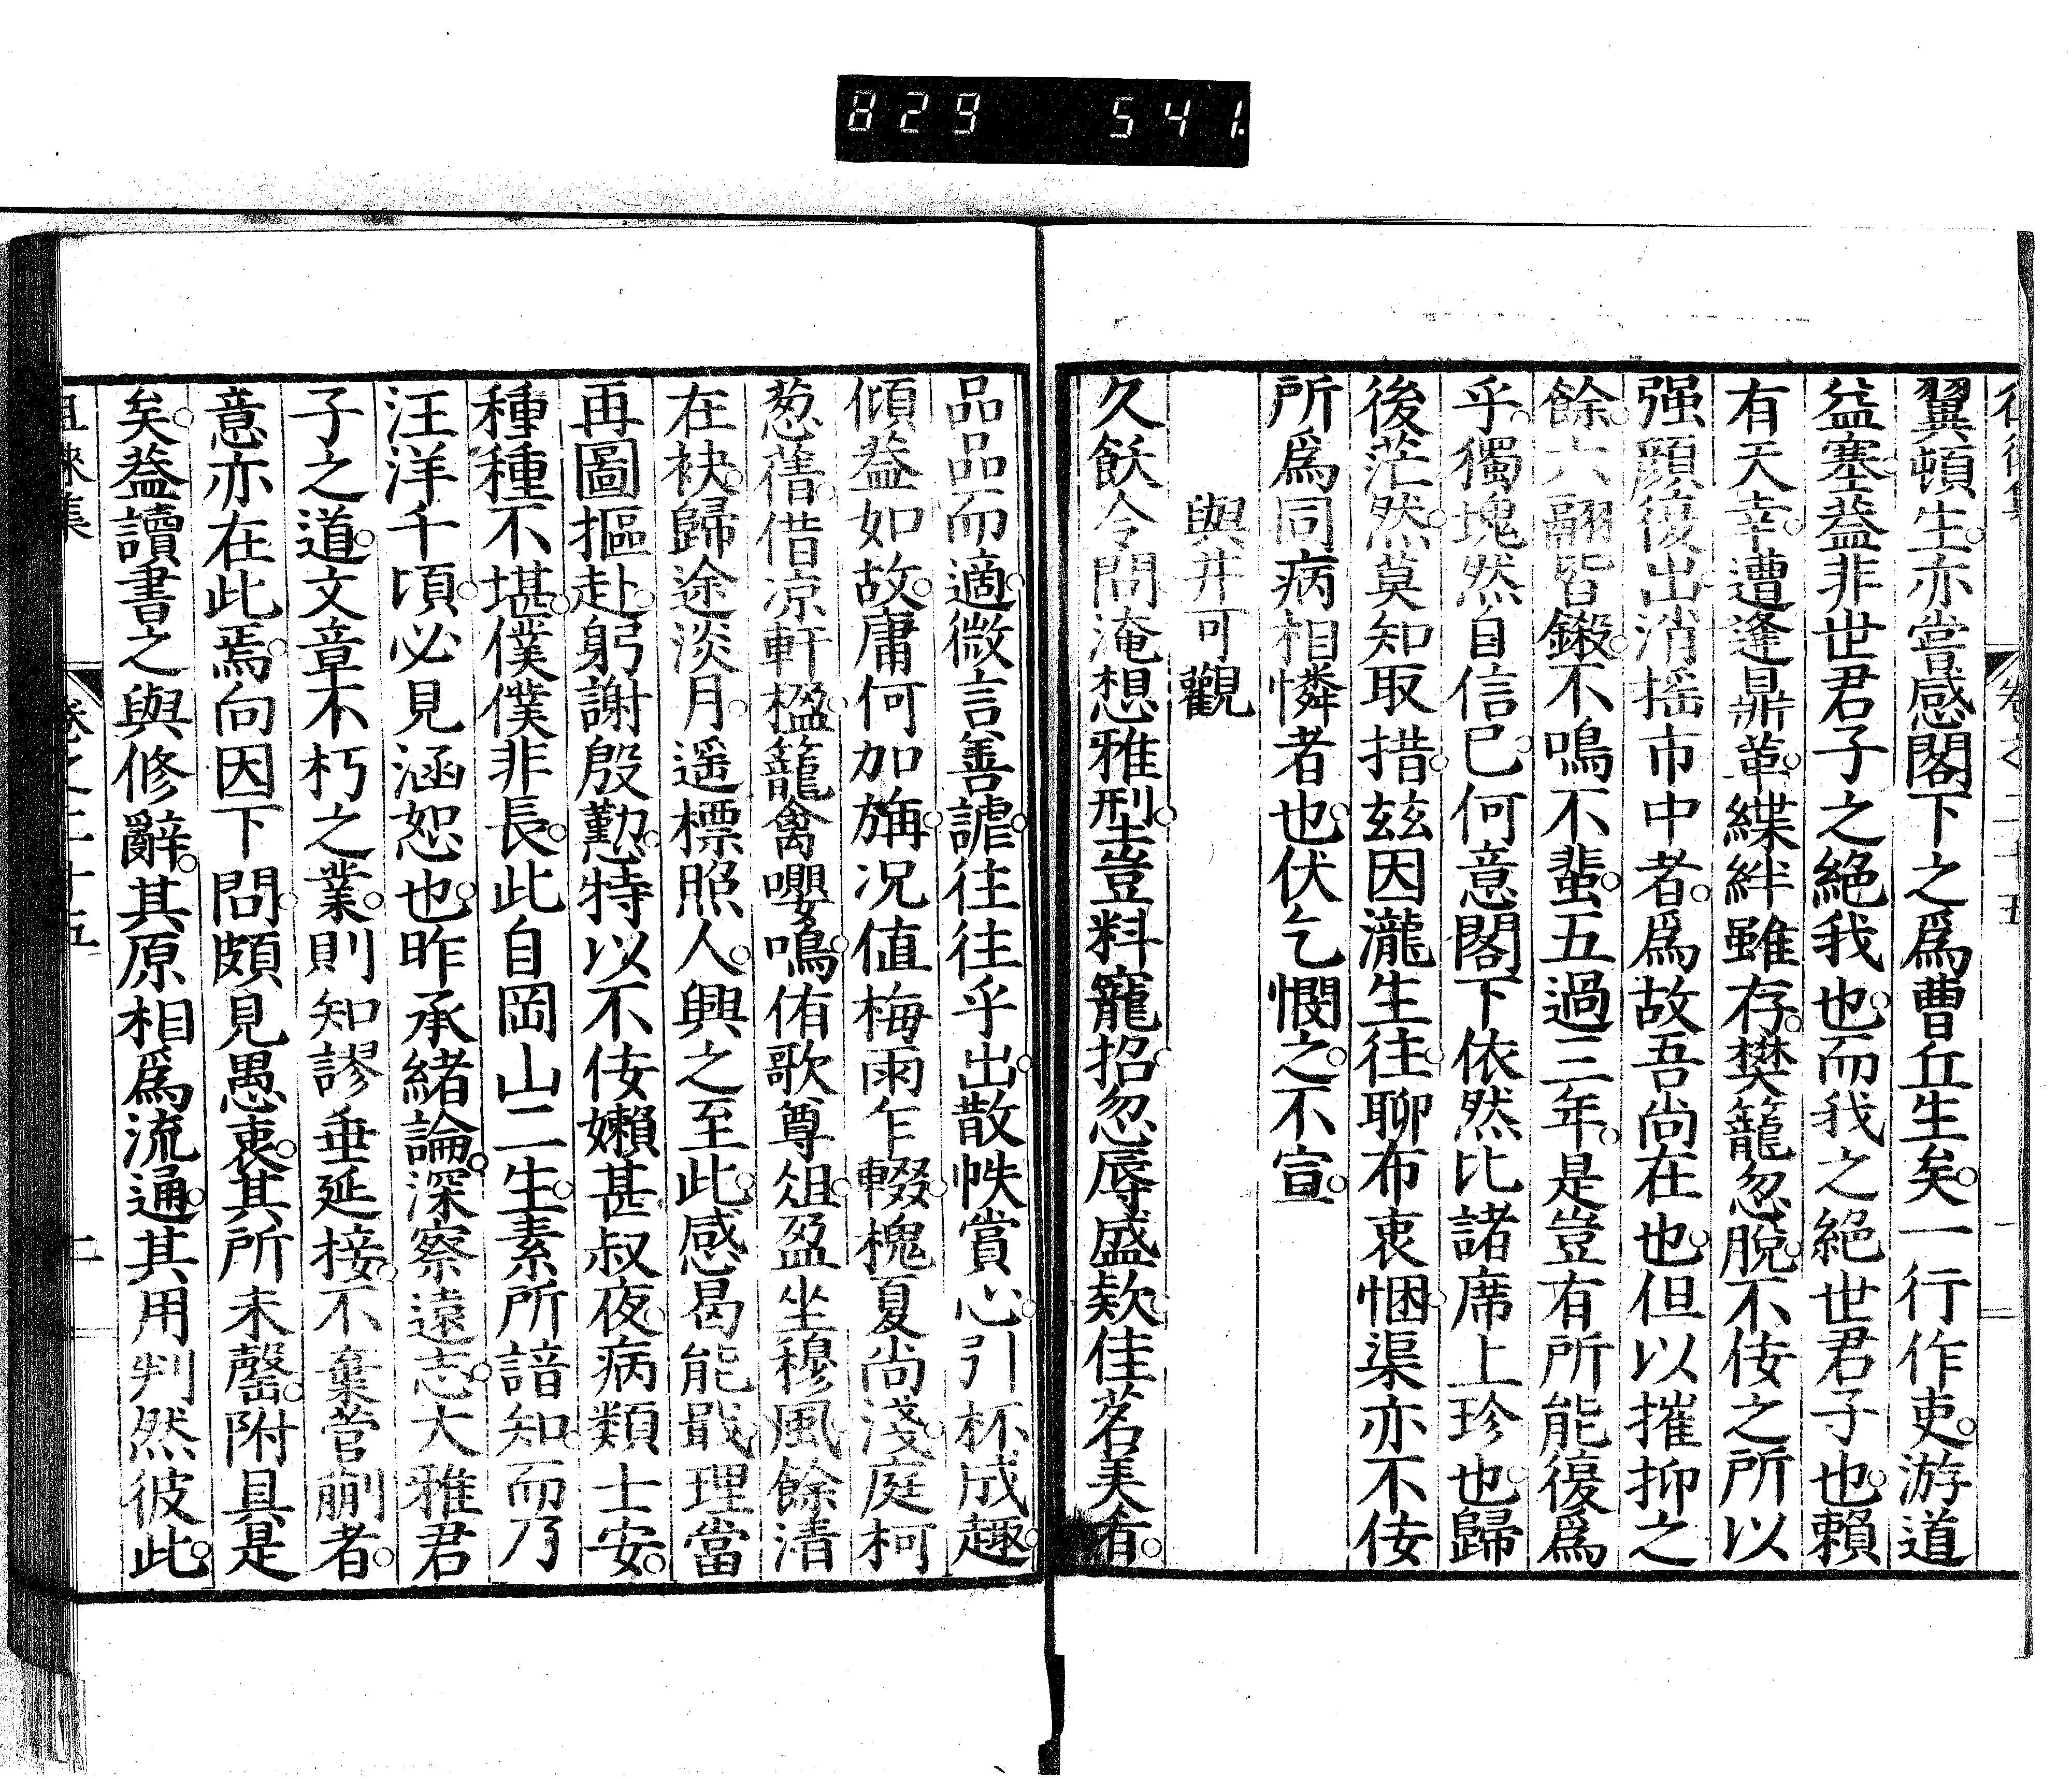 829 541.
翼頓生。亦當感閣下之爲曹丘生矣。一行作吏。游道
益塞。葢非世君子之絶我也。而我之絶世君子也。賴
有天幸。遭逢鼎革。緤絆雖存。樊籠忽脱。不佞之所以
强顔復出消搖市中者。爲故吾尚在也。但以摧抑之
餘。六翮皆鎩。不鳴不蜚。五過三年。是豈有所能復爲
乎。獨塊然自信已。何意閣下依然比諸席上珍也。歸
後茫然。莫知取措。玆因瀧生往。聊布衷悃。渠亦不佞
所爲同病相憐者也。伏乞憫之。不宣。
與井可觀
久飫令問。淹想雅刑。豈料寵招。忽辱盛欵。佳茗美肴。
品品而適。微言善謔。往往乎出。散帙賞心。引杯成趣。
傾葢如故。庸何加旃。况值梅雨乍輟。槐夏尚淺。庭柯
葱蒨。借凉軒楹。籠禽嚶鳴。侑歌尊俎。盈坐穆風。餘清
在袂。歸途淡月。遥標照人。興之至此。感曷能戢。理當
再圖摳赴。躬謝殷懃。特以不佞嬾甚叔夜。病類士安。
種種不堪。僕僕非長。此自岡山二生。素所諳知。而乃
汪洋千頃。必見涵恕也。昨承緒論。深察遠志。大雅君
子之道。文章不朽之業。則知謬垂延接。不棄菅蒯者。
意亦在此焉。向因下問。頗見愚衷。其所未罄。附具是
矣。葢讀書之與修辭。其原相爲流通。其用判然彼此。
徂徠集 卷之二十五 二